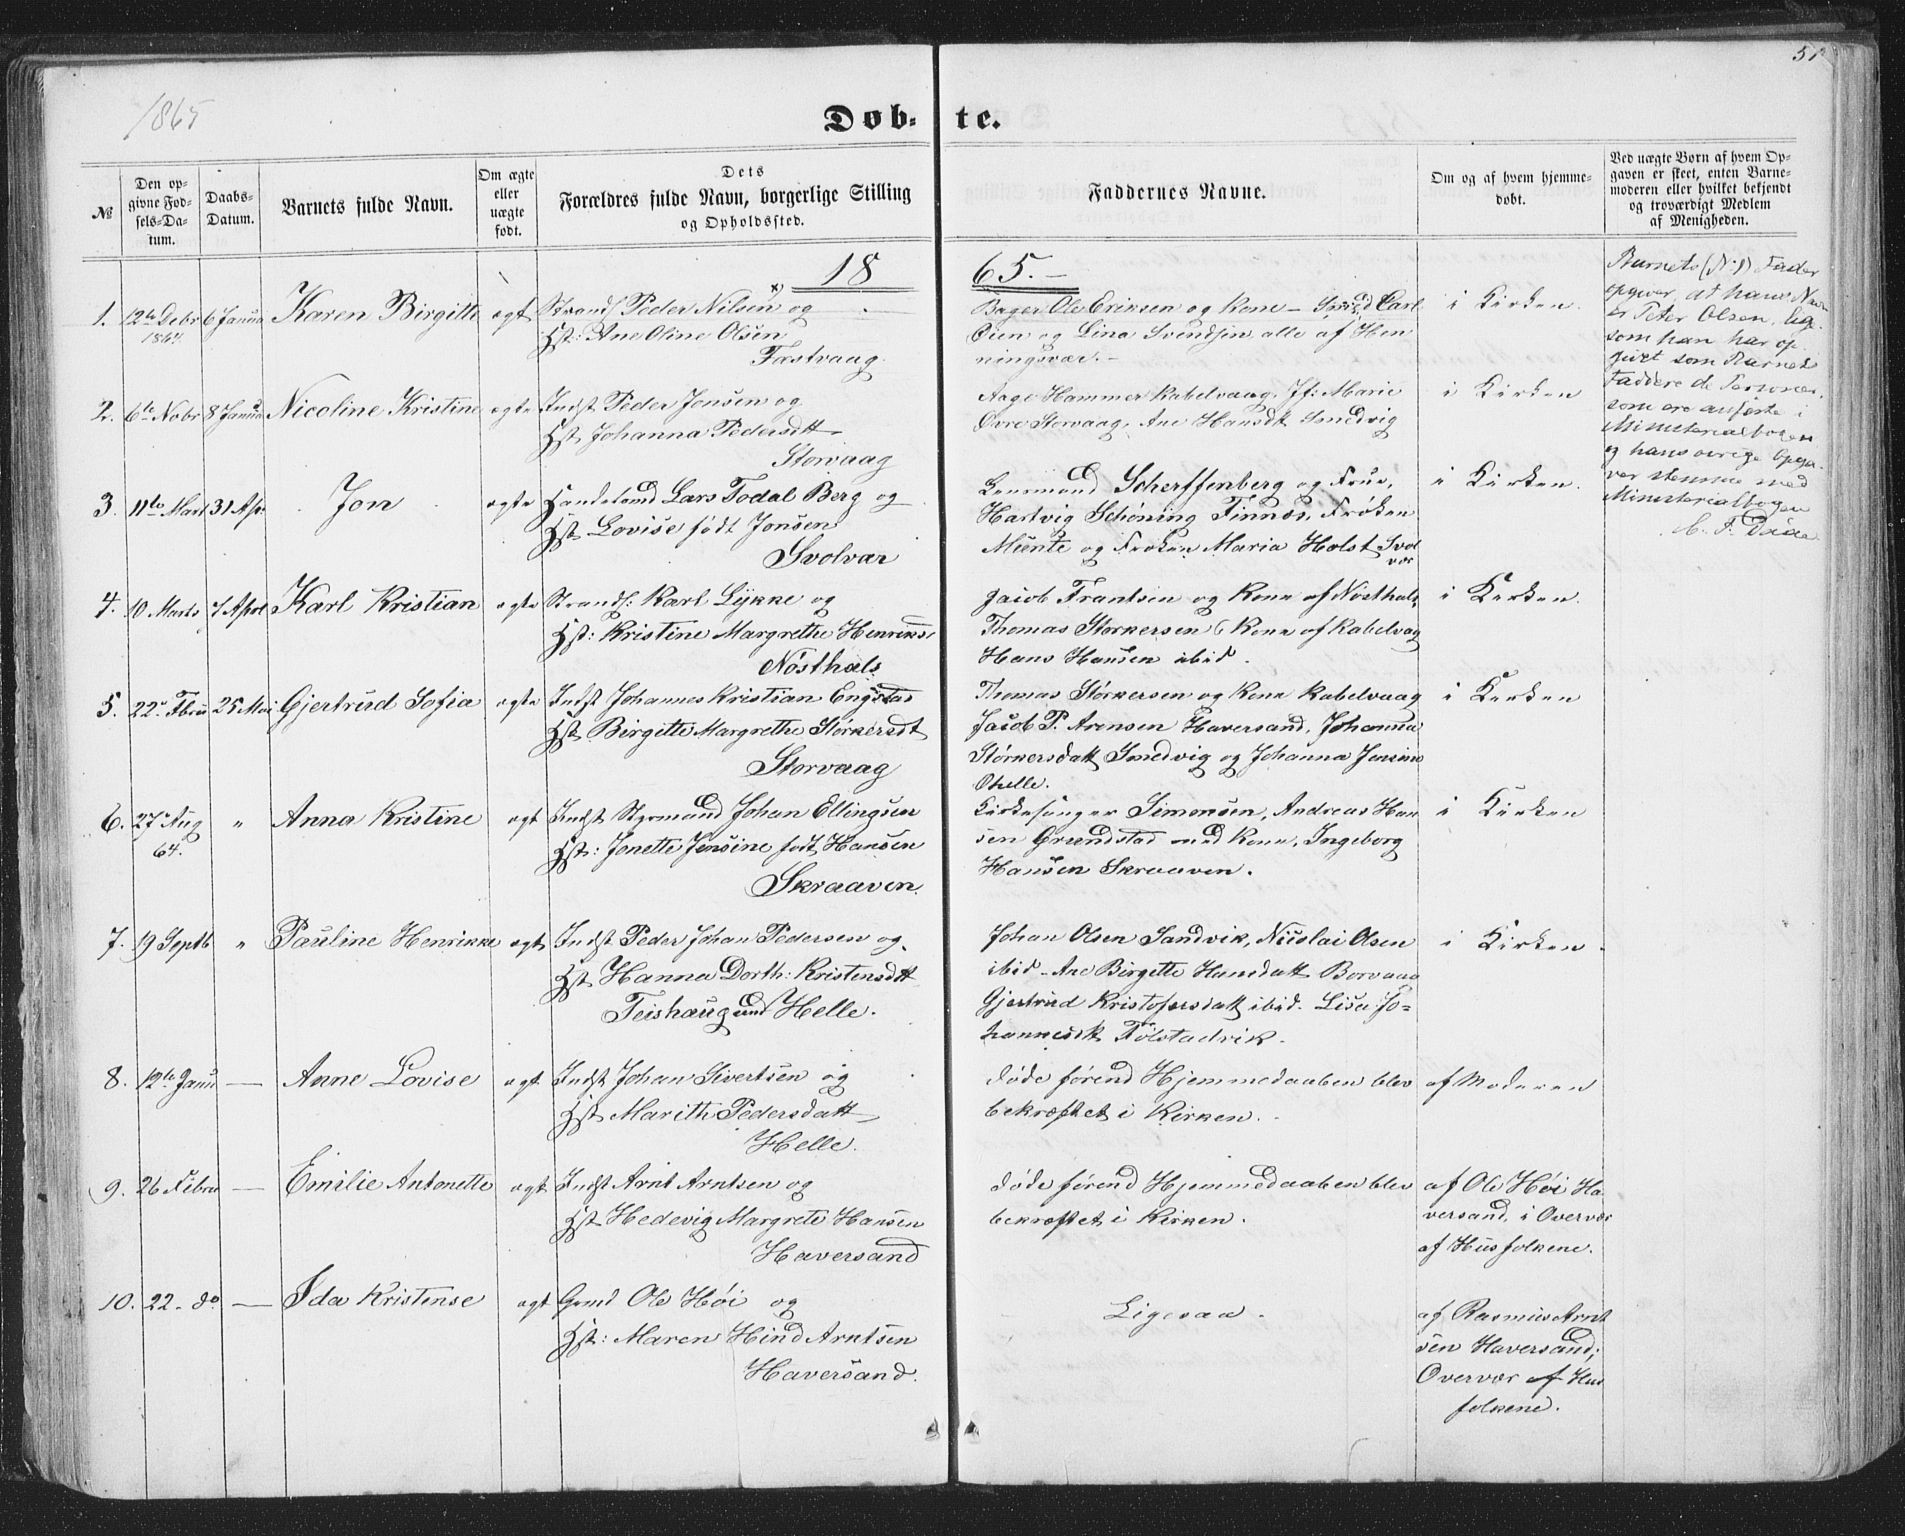 51
1865
Døb- te.
№
Den op-
givne Fød-
sels-Da-
tum.
Daabs-
Datum.
Barnets fulde Navn.
Om ægte
eller
uægte
født.
Dets
Forældres fulde Navn, borgerlige Stilling
og Opholdssted.
Faddernes Navne.
Om og af hvem hjemme-
døbt.
Ved uægte Børn af hvem Op-
gaven er skeet, enten Barne-
moderen eller hvilket bekjendt
og troværdigt Medlem
af Menigheden.
18 65.
1. 12te Debr 6 Janua Karen Birgitte ægt Strands Peder Nilsen x) og
1864 Hst: Ane Oline Olsen
Fæstvaag
Bager Ole Eriksen og Kone – Carl
Oien og Lina Svendsen alle af Hen
ningsvær.
i Kirken.
Barnets (N:1) Fader
opgiver, at hans Navn
er Peter Olsen, lig-
som han har op-
givet som Barnets
Faddere de Personer,
som ere anførte i
Ministerialbogen
og hans øvrige Opga-
ver stemme med
Ministerialbogen
2. 6te Nobr 8 Janua Nicoline Kristine ægte Indst Peder Jonsen og
Hst Johanna Pedersdtt
Storvaag
Aage Hammer Kabelvaag, Jf: Marie
Øvre Storvaag, Ane Hansdt Smedvig
i Kirken
3. 11te Mart 31 Apr. Jon ægte Handelsmd Lars Todal Berg og
Hst Lovise født Jonsen
Svolvær
Lensmand Scherffenberg og Frue,
Hartvig Schøning Finnøs, Frøken
Münte og Frøken Maria Holst Svol
vær
i Kirken.
4. 10 Marts 7 April Karl Kristian ægte Strands: Karl Lykke og
Hst: Kristine Margrethe Henriks
Nøsthals
Jacob Frantsen og Kone af Nøsthals,
Thomas Størkersen & Kone af Kabelvag
Hans Hansen ibid.
i Kirken.
5. 22 Fbru 25 Mai Gjertrud Sofia ægte Indst Johannes Kristian Engstad
Hst Birgitte Margrethe Størkersdt
Storvaag
Thomas Størkersen og Kone Kabelvaag
Jacob P. Arensen Haversand, Johanna
Størkersdatt Smedvig og Johanna Jensine
Ohelle.
i Kirken
6. 27 Aug " Anna Kristine ægt Indst Styrmand Johan Ellingsen
64. Hst: Jonette Jensine født Hansen
Skraaven.
Kirkesanger Simonsen, Andreas Han
sen Grundstad med Kone, Ingeborg
Hansen Skraaven.
i Kirken
7. 19 Septb " Pauline Henrikke ægt Indst Peder Johan Pedersen og
Hst Hanna Dorth: Kristensdtt
Teishaug und Helle.
Johan Olsen Sandvik, Nicolai Olsen
ibid – Ane Birgitte Hansdatt Borvaag
Gjertrud Kristofersdatt ibid. Lisa Jo=
hannesdt Følstadvik.
i Kirken.
8. 12te Janu — Anne Lovise ægt Indst Johan Sivertsen og
Hst Marith Pedersdatt
Helle.
døde førend Hjemmedaaben blev
bekræftet i Kirken.
af Moderen
9. 26 Febru — Emilie Antonette ægt Indst Arnt Arntsen og
Hst Hedevig Margrete Hansen
Haversand
døde førend Hjemmedaaben blev
bekræftet i Kirken.
af Ole Høi Ha
versand, i Overvær
af Husfolkene.
10. 22 – do — Ida Kristense ægt Grmd Ole Høi og
Hst: Maren Hind Arntsen
Haversand.
Ligesaa.
af Rasmus Arnt
sen Haversand;
Overvær af Hus
folkene.